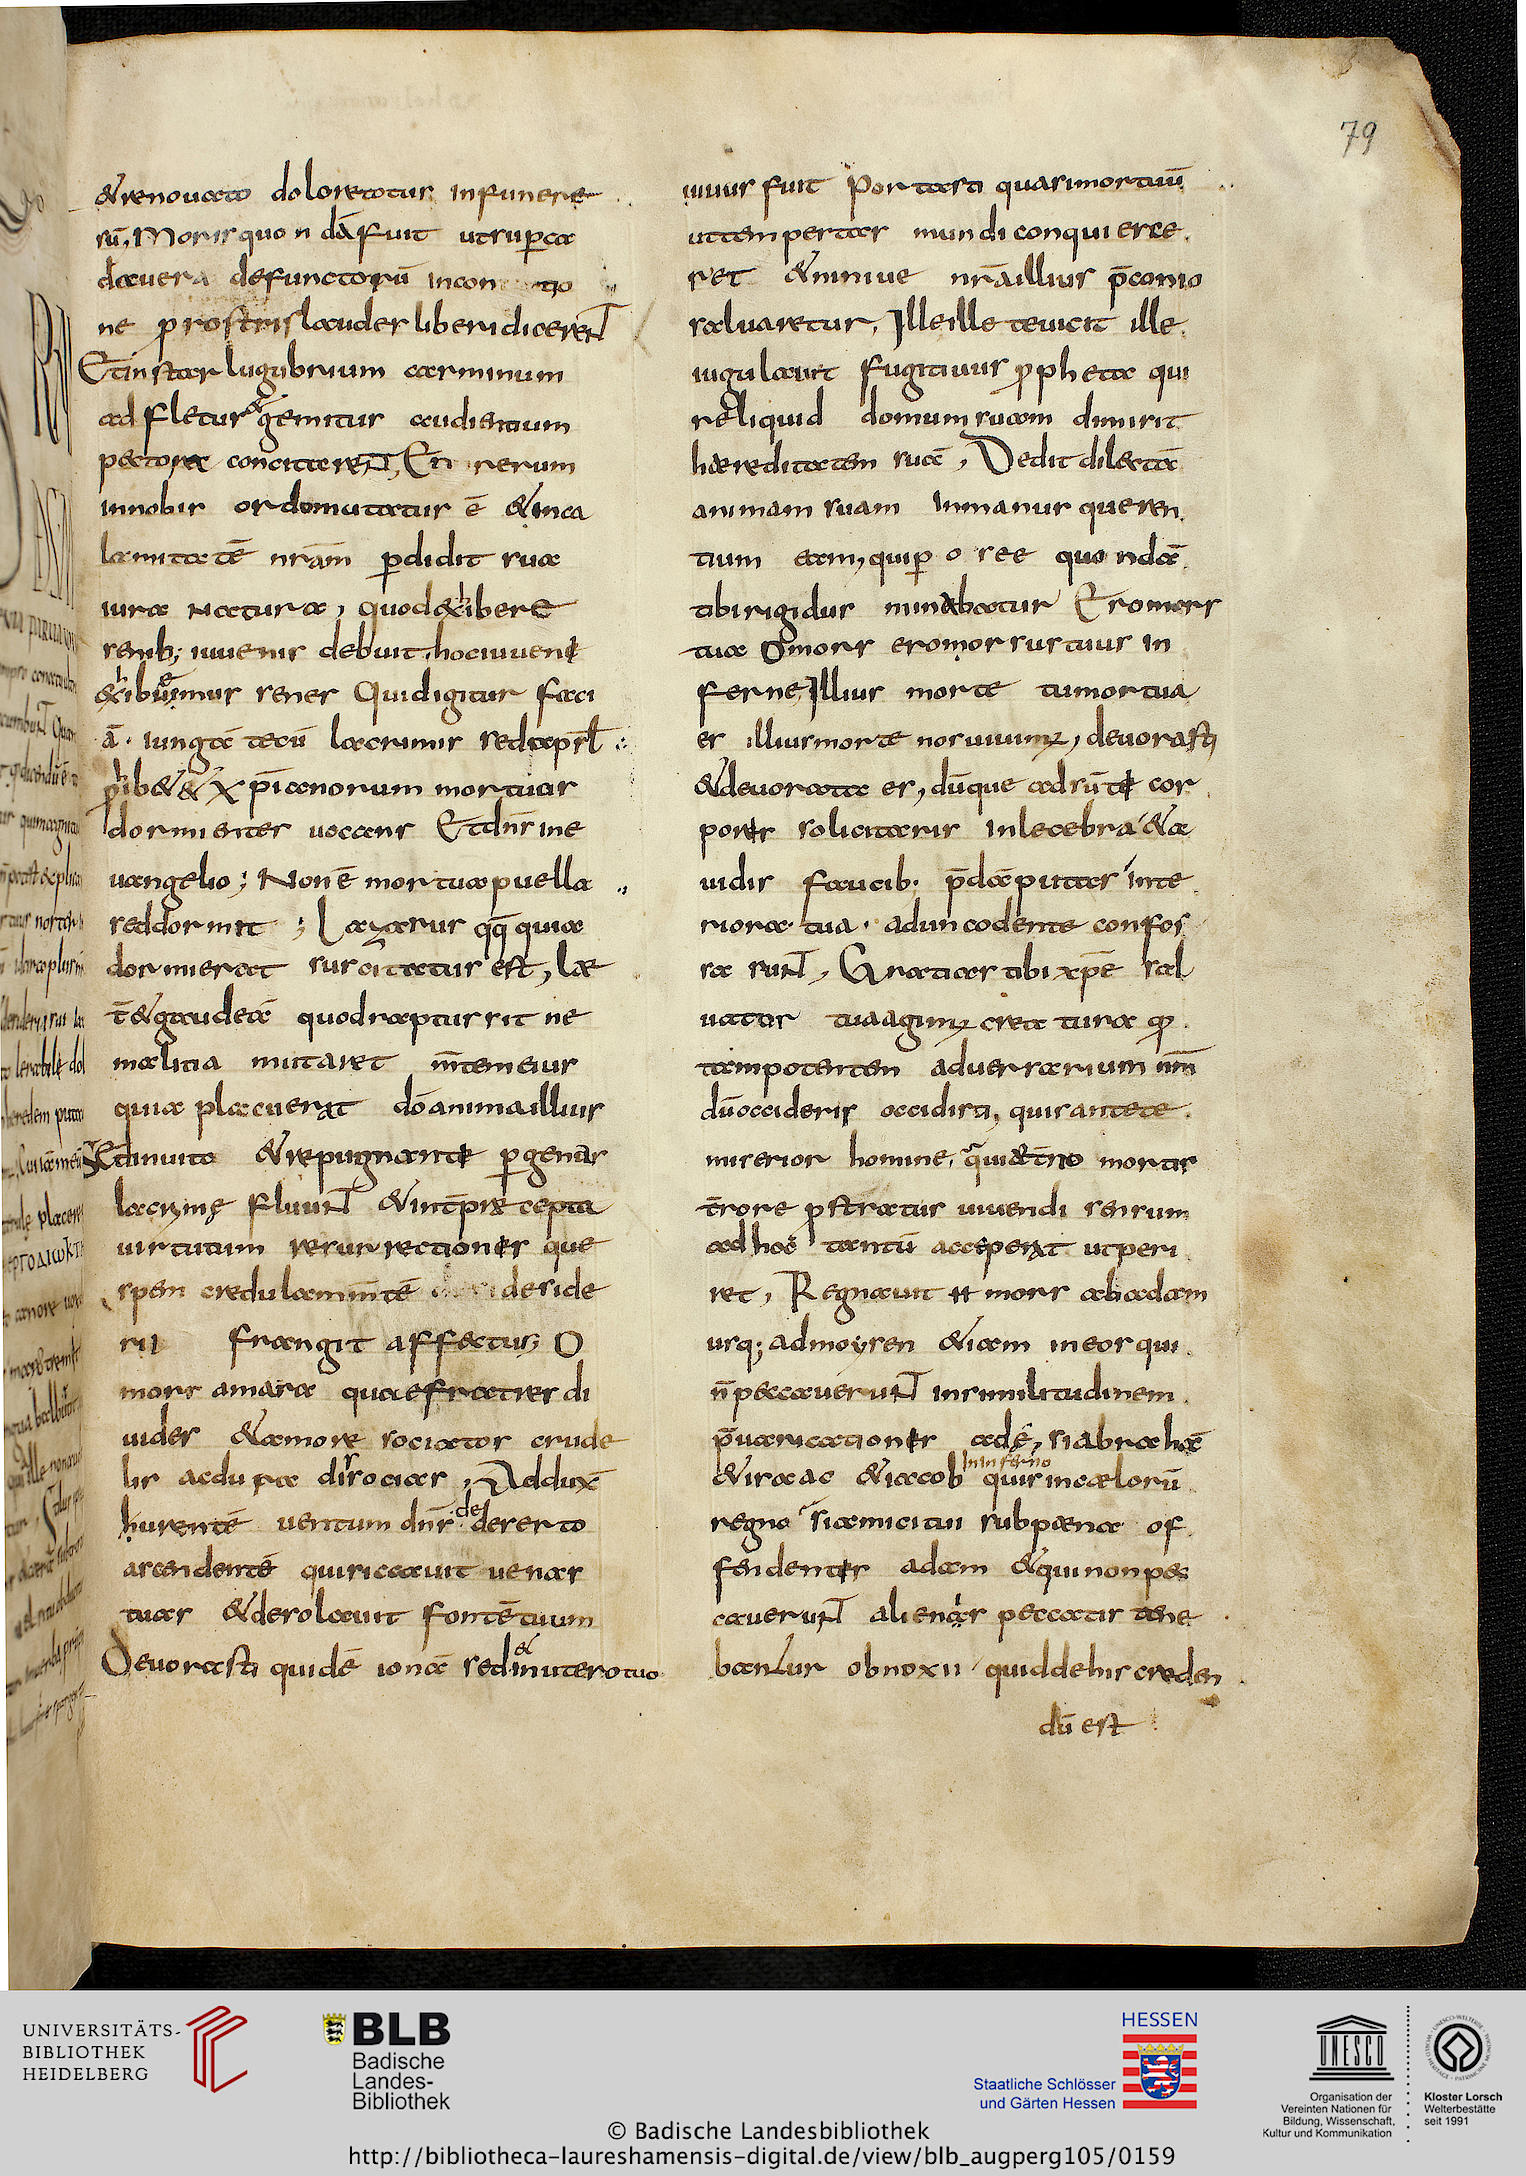 79
&renouato dolore totus infunere
sū, Moris quondā fuit utsup ca
dauera defunctorū incon tio
ne pro rostris laudes liberi dicerent
Et instar lugubrium carminum
ad fletus & gemitus audientium
pectora concitarent, En rerum
innobis ordo mutatus ē & inca
lamitatē nrām pdidit sua
iura natura, quod exhibere
senib; iuuenis debuit hociuuene
exhibuimus senes Quid igitur faci
ā. iungā tecū lacrimis sed apostl
phib& & xpianorum mortuos
dormientes uocans Et dns ine
uangelio; Non ē mortua puella
sed dormit; Lazarus qq quia
dormierat suscitatus est, lae
t & gaudeā quod raptus sit ne
malitia mutaret mtem eius
quia placuerat do anima illius
Sed inuito & repugnante p genas
lacrime fluunt & int precepta
uirtutum resurrectionis que
spem credulam mtē deside
rii frangit affectus; O
mors amara quae fratres di
uides & amore sociatos crude
lis ac dura dissocias, Adduxit
hurentē uentum dns de deserto
ascendentē qui siccauit uenas
tuas & desolauit fontē tuum
Deuorasti quidē ionā sed & inuterotuo
uiuus fuit Portasti quasi mortuū
ut tempestas mundi conquiesce
ret & niniue nrā illius pconio
saluaretur, Ille ille te uicit ille
iugulauit fugitiuus propheta qui
reliquid domum suam dimisit
haereditatem suā, Dedit dilectā
animam suam in manus queren
tium eam, qui p o see quondā
tibi rigidus minabatur Ero mors
tua o mors ero morsus tuus in
ferne, Illius morte tu mortua
es illius morte nos uiuim, deuorasti
& deuorata es, dūque adsūte cor
poris solicitaris inlecebra & a
uidis faucib. pdā putas inte
riora tua. adunco dente confos
sa sunt, Gratias tibi xpe sal
uator tua agim creatura qd
tam potentem aduersarium nrm
dū occideris occidisti, quis ante te
miserior homine, qui aeterno mortis
terrore pstratus uiuendi sensum
ad hoc tantū acceperat ut peri
ret, Regnauit H mors ab adam
usq; ad moysen & iam in eos qui
n peccauerunt in similitudinem
preuaricationis adę, si abrahā
& isaac & iacob in inferno quis in caelorū
regno si amici tui sub poena of
fendentis adam & qui non pec
cauerunt alienis peccatis tene
bantur obnoxii quid de his creden
dū est
UNIVERSITÄTS-
BIBLIOTHEK
HEIDELBERG
BLB
Badische
Landes-
Bibliothek
HESSEN
Staatliche Schlösser
und Gärten Hessen
UNESCO
Organisation der
Vereinten Nationen für
Bildung, Wissenschaft,
Kultur und Kommunikation
Kloster Lorsch
Welterbestätte
seit 1991
© Badische Landesbibliothek
http://bibliotheca-laureshamensis-digital.de/view/blb_augperg105/0159